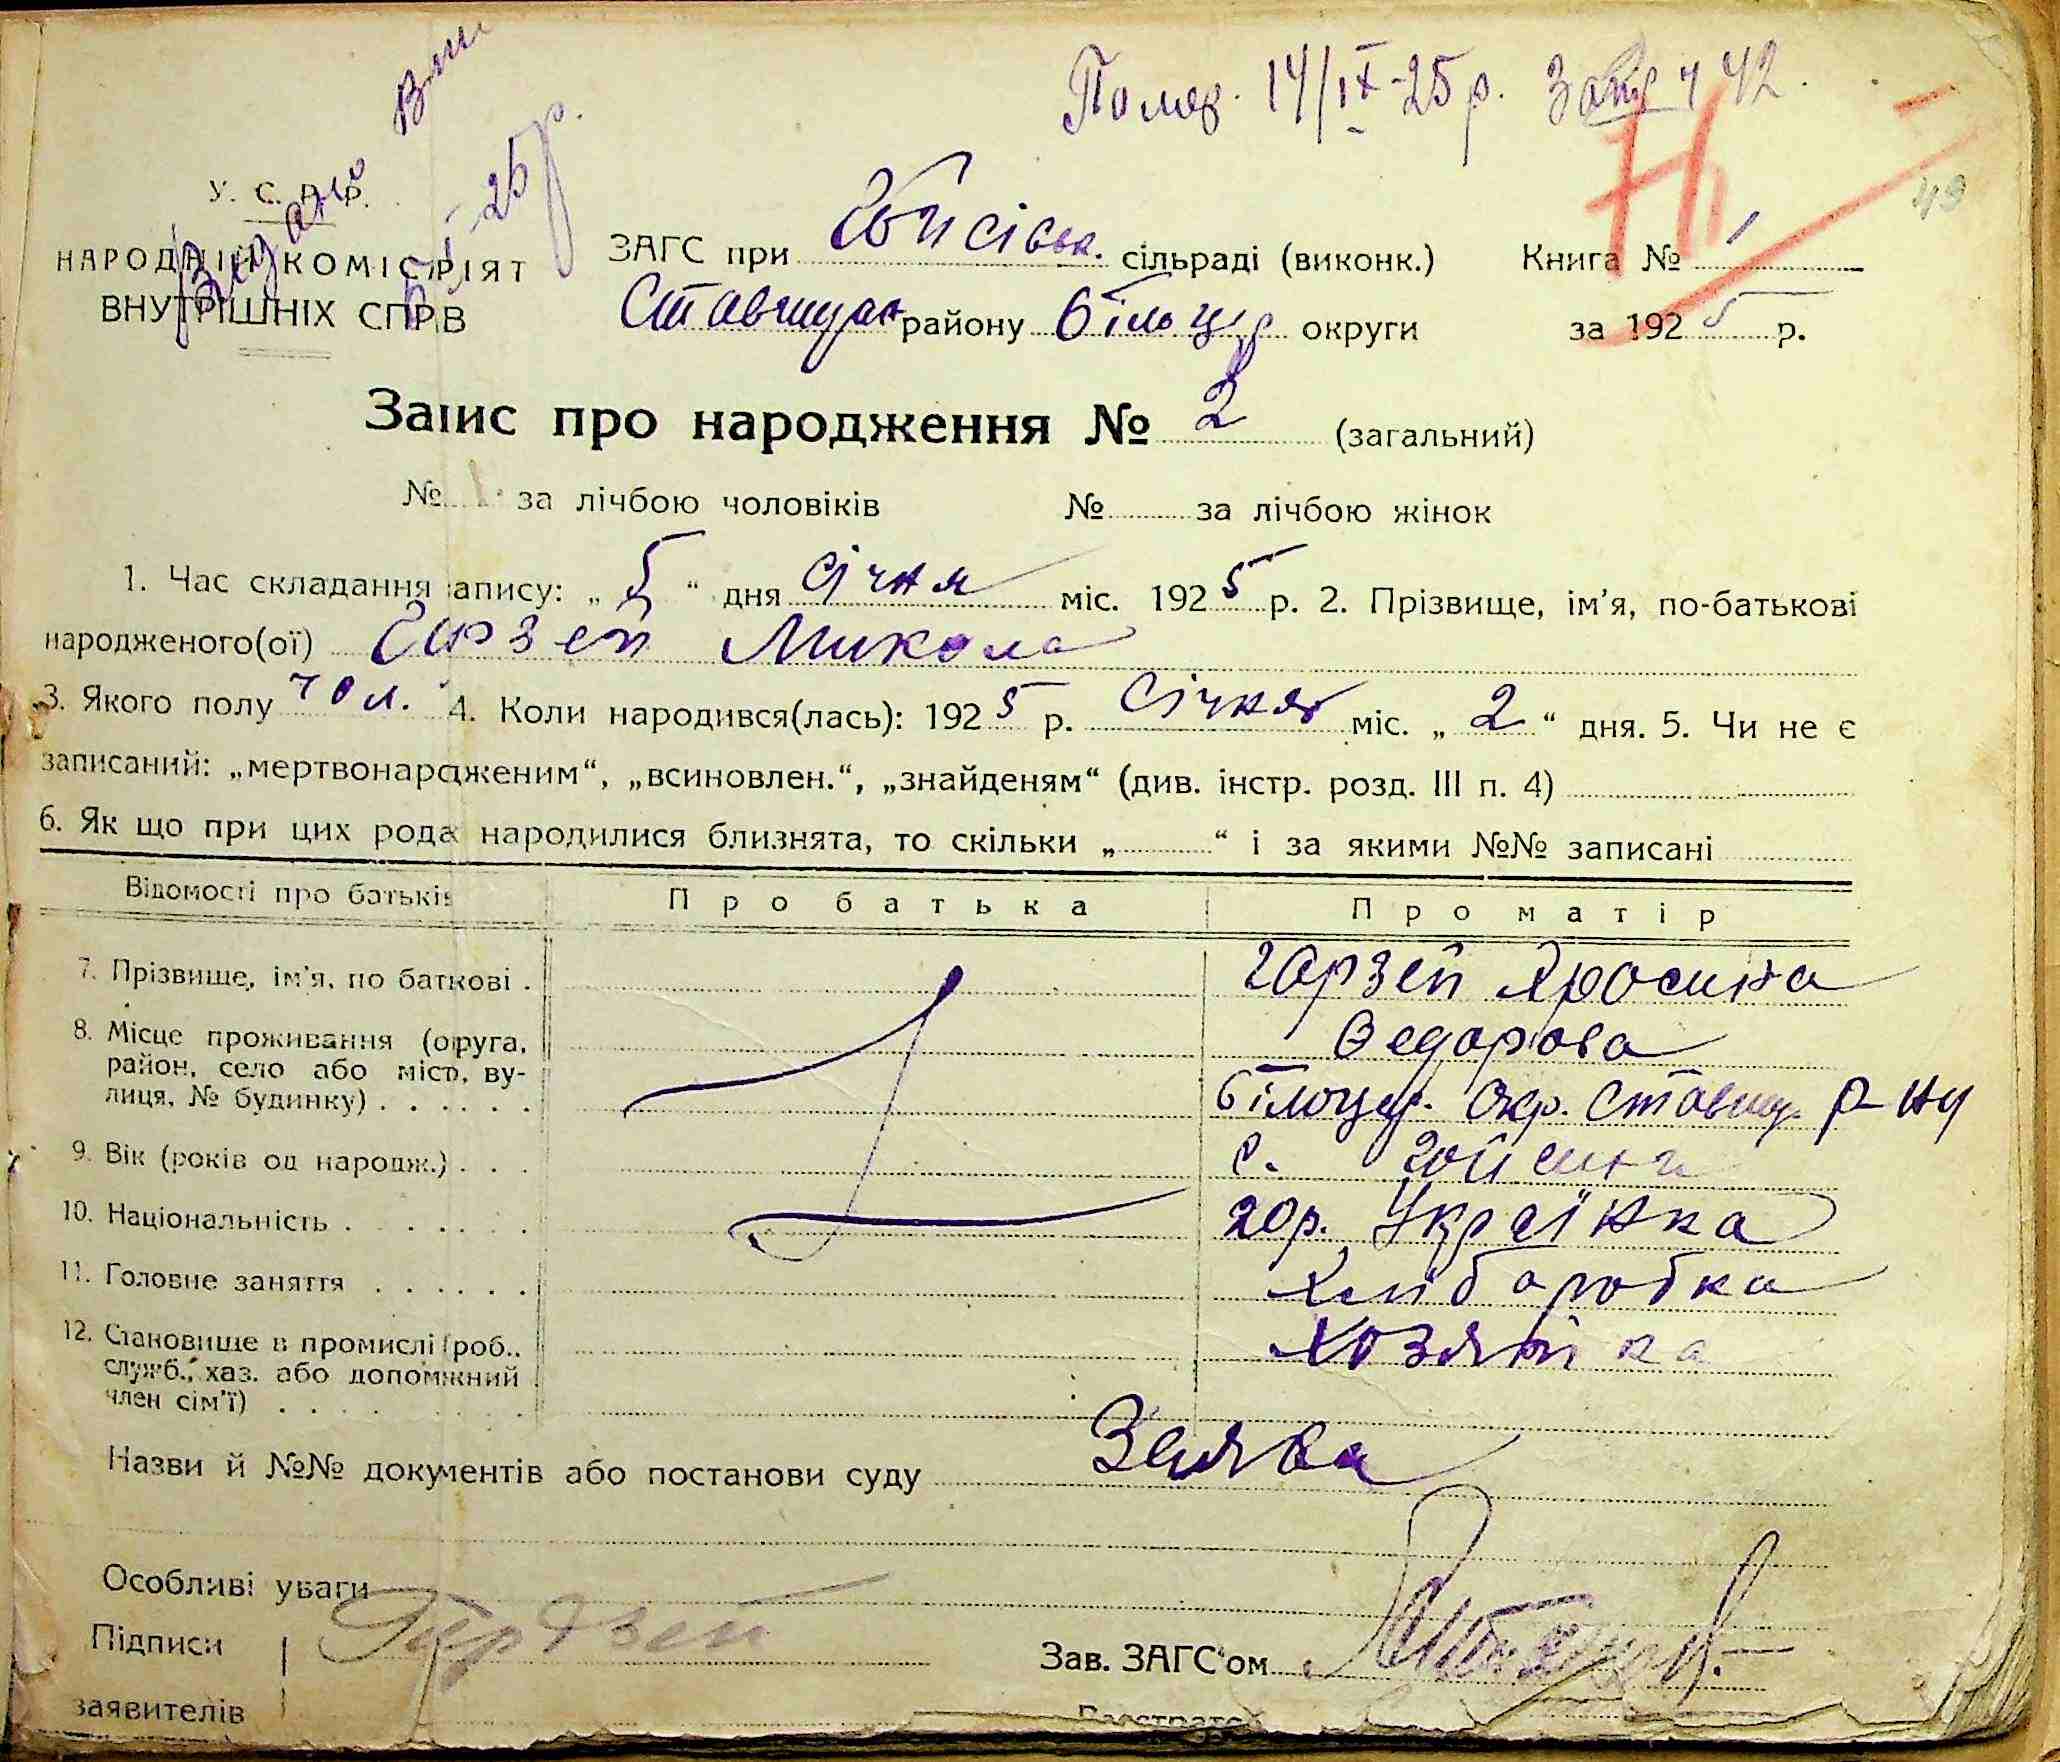 Помер. 14/IX-25 р. Запис ч 42.
49
Видано
25 р.
У. С. Р. Р.
НАРОДНІЙ КОМІСАРІЯТ
ВНУТРІШНІХ СПРАВ
ЗАГС при Гойсівськ. сільраді (виконк.) Книга № 1
Ставищан району Білоцер округи за 1925 р.
Запис про народження № 2 (загальний)
№ 1 за лічбою чоловіків № за лічбою жінок
1. Час складання запису: „ 5 “ дня Січня міс. 1925 р. 2. Прізвище, ім'я, по-батькові
народженого(ої) Гарзей Микола
3. Якого полу чол. 4. Коли народився(лась): 1925 р. Січня міс. „ 2 “ дня. 5. Чи не є
записаний: „мертвонародженим“, „всиновлен.“, „знайденям“ (див. інстр. розд. III п. 4)
6. Як що при цих родах народилися близнята, то скільки „ “ і за якими №№ записані
Відомості про батьків Про батька Про матір
7. Прізвище, ім'я, по баткові . Гарзей Яросина
Федорова
8. Місце проживання (округа, район, село або місто, вулиця, № будинку) . . . . . . Білоцер. Окр. Ставищ. р-ну
с. Гойсина
9. Вік (років од народж.) . . . 20 р.
10. Національність . . . . . . . Українка
11. Головне заняття . . . . . . Хліборобка
12. Становище в промислі (роб., служб., хаз. або допоміжний член сім'ї) . . . . Хозяйка
Назви й №№ документів або постанови суду Заява
Особливі уваги
Підписи Гардзей
заявителів
Зав. ЗАГС'ом
Реєстратор